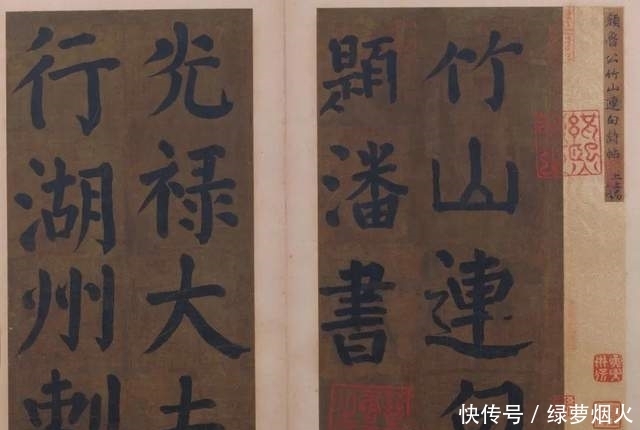 顏魯公竹山連句詩帖
紹興
竹山連句
題潘書
光禄大
行湖州刺
快传号 / 绿萝烟火